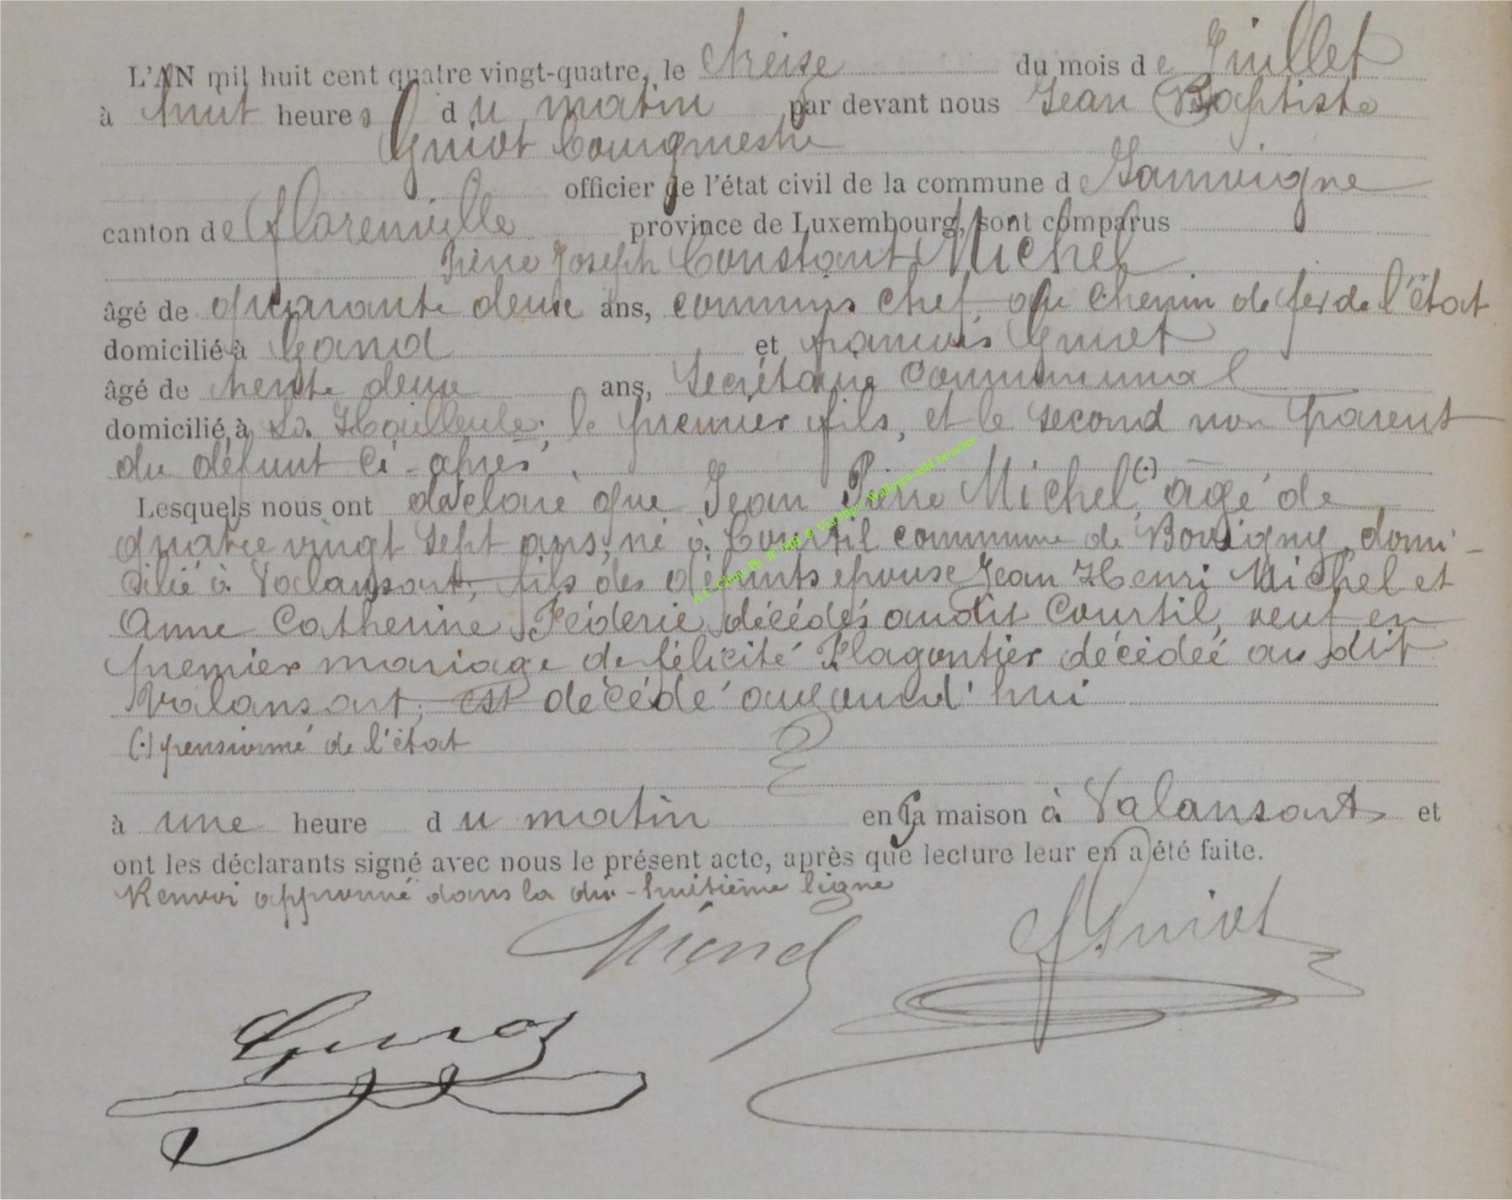 L'AN mil huit cent quatre vingt-quatre, le treise du mois de Juillet
à huit heures du matin par devant nous Jean Baptiste
Guiot bourgmestre
officier de l'état civil de la commune de Jamoigne
canton de Florenville province de Luxembourg, sont comparus
Pierre Joseph Constant Michel
âgé de quarante deux ans, commis chef au chemin de fer de l'état
domicilié à Gand et françois Guiot
âgé de trente deux ans, Secrétaire Communal
domicilié à La Hailleule; le premier fils, et le second non Parent
du défunt ci-après.
Lesquels nous ont déclaré que Jean Pierre Michel (.) âgé de
quatre vingt sept ans, né à Courtil commune de Bovigny, domi-
cilié à Valansart, fils des défunts epoux Jean Henri Michel et
Anne Catherine Féderie, décédés audit Courtil, veuf en
premier mariage de félicité Plagontier décédée au dit
Valansart, est décédé aujourd'hui
(.) pensionné de l'état
à une heure du matin en sa maison à Valansart et
ont les déclarants signé avec nous le présent acte, après que lecture leur en a été faite.
Renvoi approuvé dans la dix-huitième ligne
Michel
f Guiot
Guiot